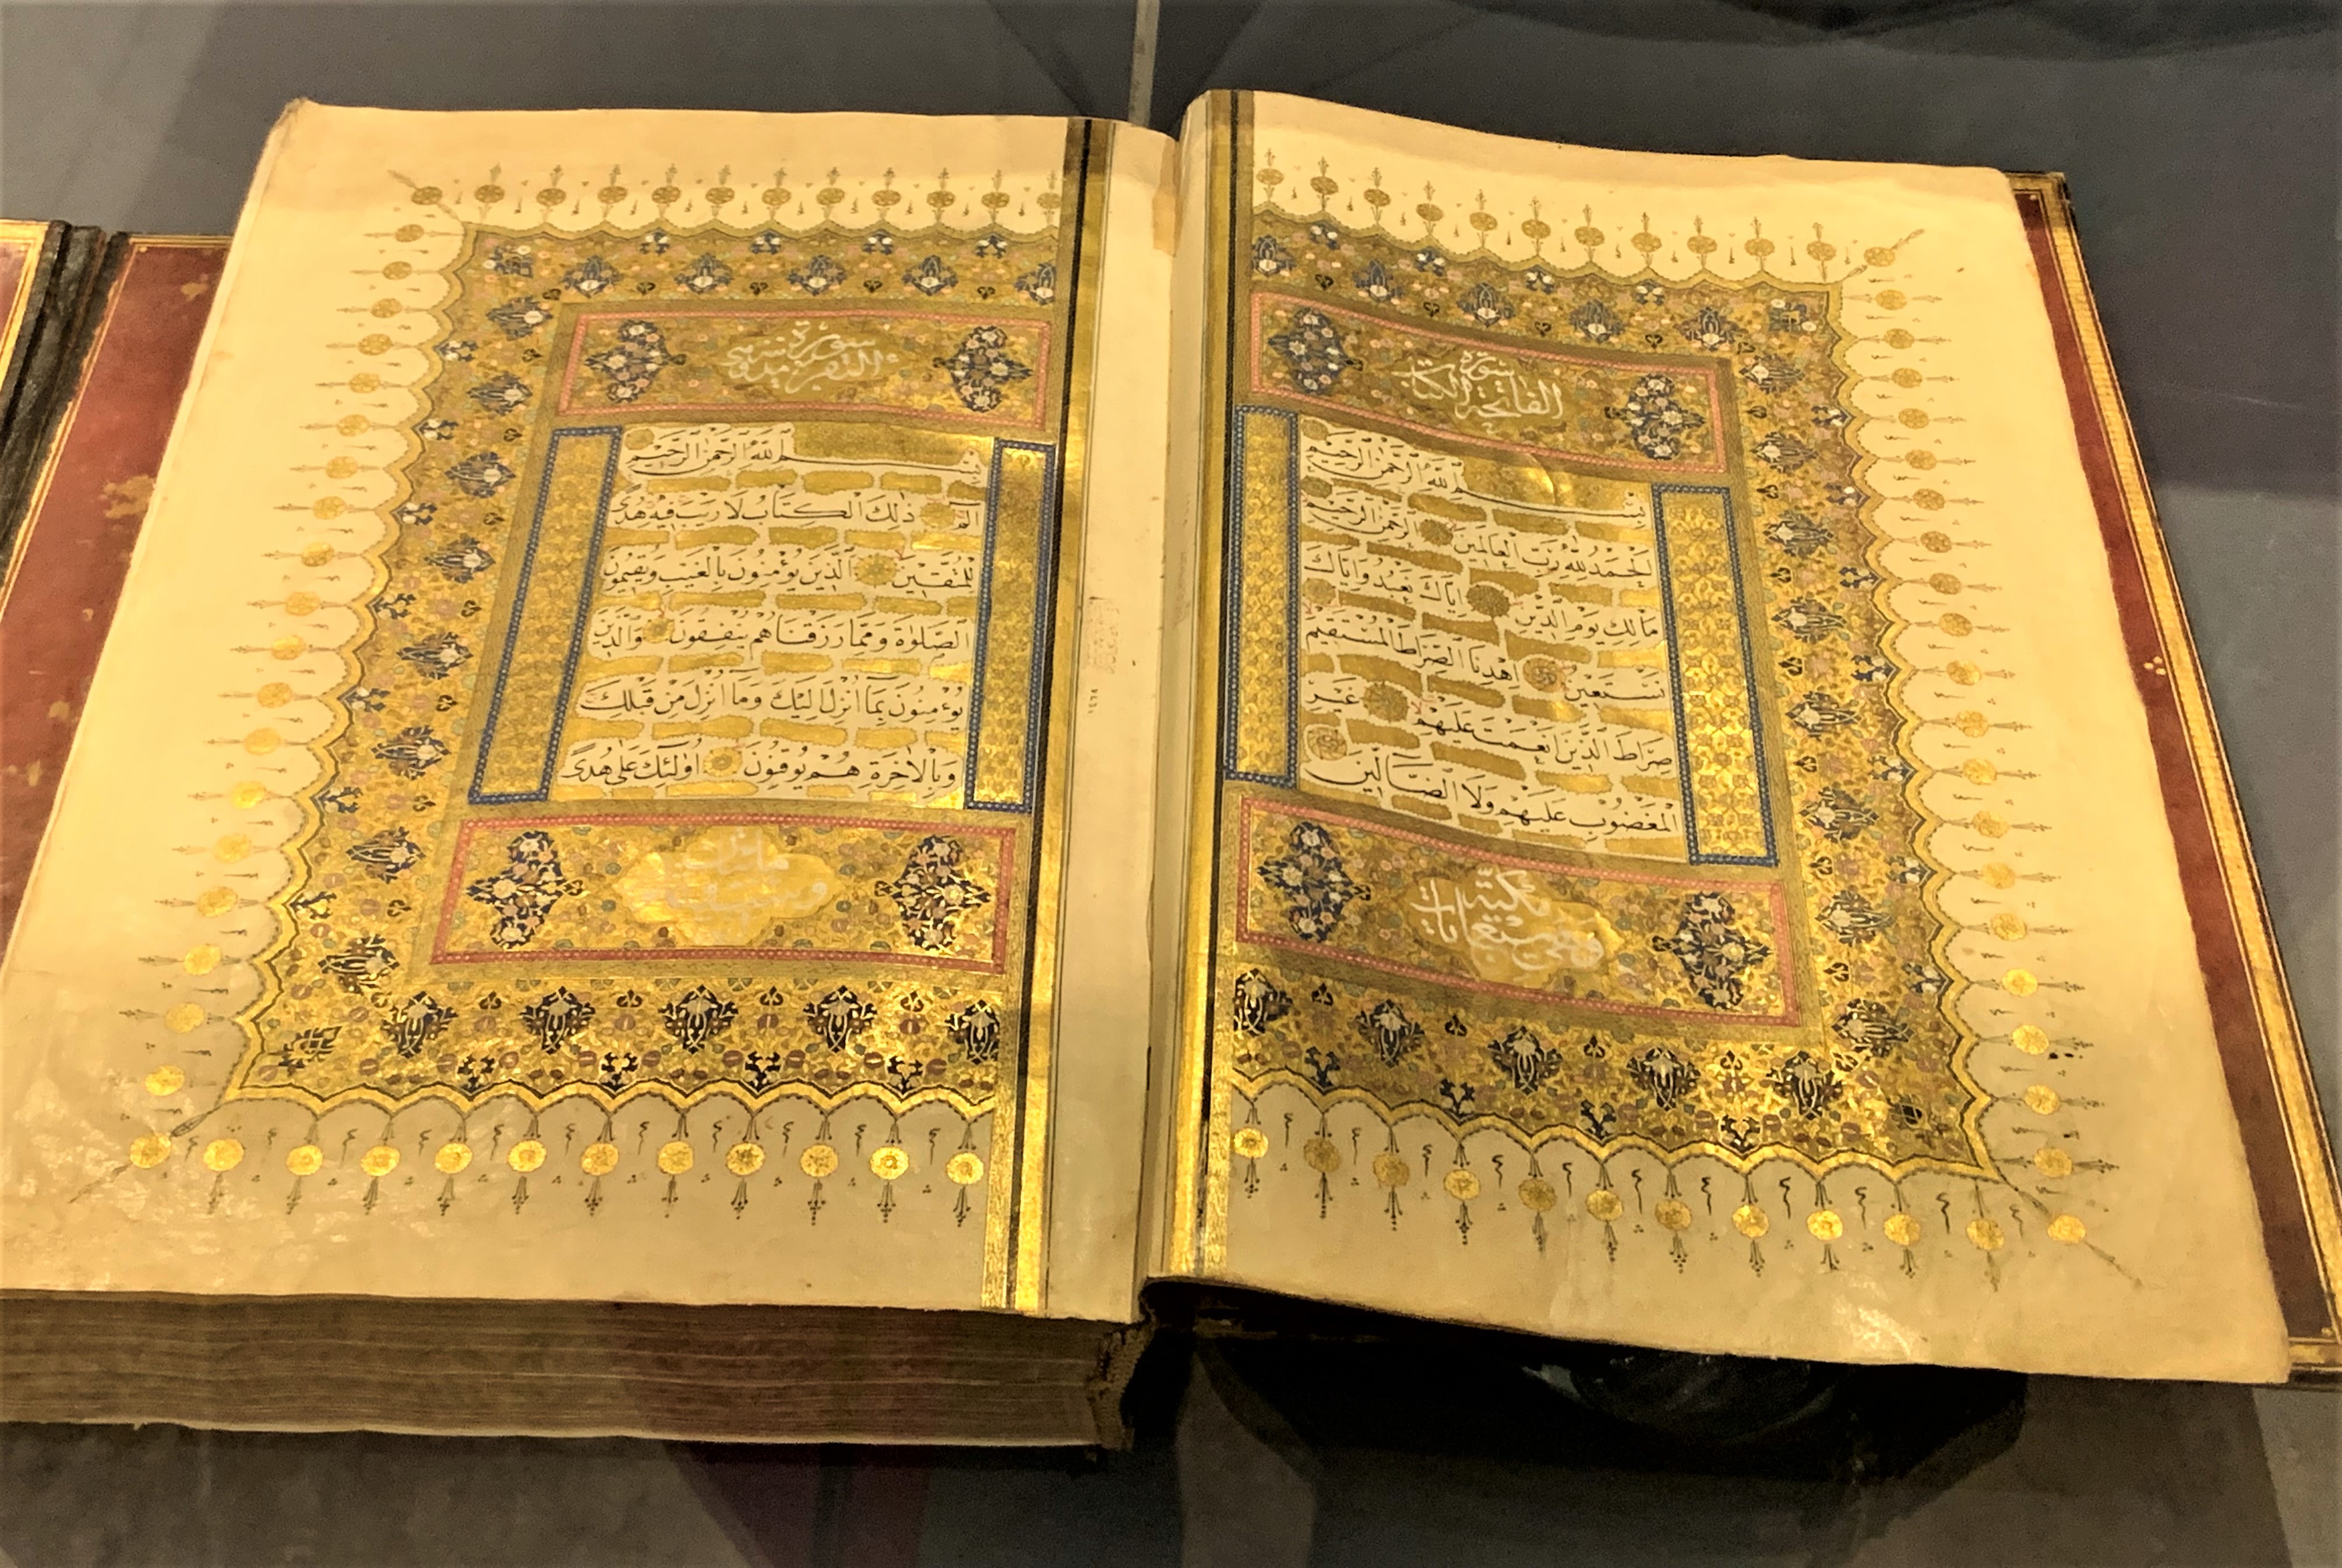 سورة
الفاتحة الكتاب
بسم الله الرحمن الرحيم
اَلْحَمْدُ لِلّٰهِ رَبِّ الْعَالَمِينَ الرَّحْمٰنِ الرَّحِيمِ
مَالِكِ يَوْمِ الدِّينِ اِيَّاكَ نَعْبُدُ وَاِيَّاكَ
نَسْتَعِينُ اِهْدِنَا الصِّرَاطَ الْمُسْتَقِيمَ
صِرَاطَ الَّذِينَ اَنْعَمْتَ عَلَيْهِمْ غَيْرِ
الْمَغْضُوبِ عَلَيْهِمْ وَلَا الضَّالِّينَ
مكية
وهي سبع ايات
سورة
البقرة مدنية
بسم الله الرحمن الرحيم
الم ذٰلِكَ الْكِتَابُ لَا رَيْبَ فِيهِ هُدًى
لِلْمُتَّقِينَ اَلَّذِينَ يُؤْمِنُونَ بِالْغَيْبِ وَيُقِيمُونَ
الصَّلٰوةَ وَمِمَّا رَزَقْنَاهُمْ يُنْفِقُونَ وَالَّذِينَ
يُؤْمِنُونَ بِمَا اُنْزِلَ اِلَيْكَ وَمَا اُنْزِلَ مِنْ قَبْلِكَ
وَبِالْاٰخِرَةِ هُمْ يُوقِنُونَ اُولٰئِكَ عَلٰى هُدًى